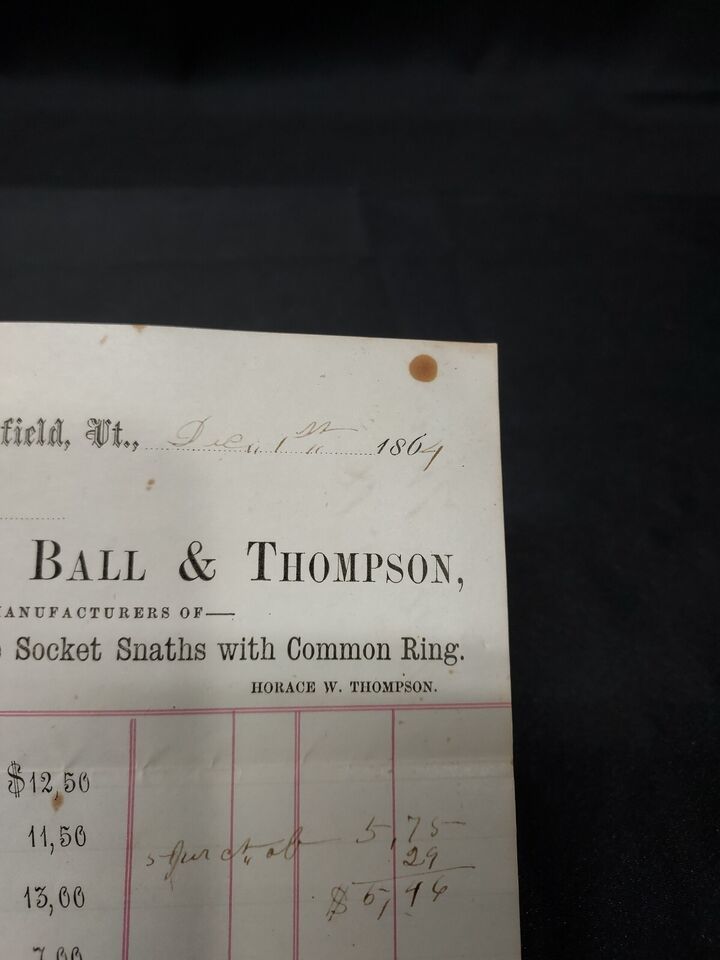 field, Vt., Dec. 1st 1864
BALL & THOMPSON,
MANUFACTURERS OF—
Socket Snaths with Common Ring.
HORACE W. THOMPSON.
$12,50
11,50 5,75
5 pr ct. off 29
13,00 $5,46
7,00